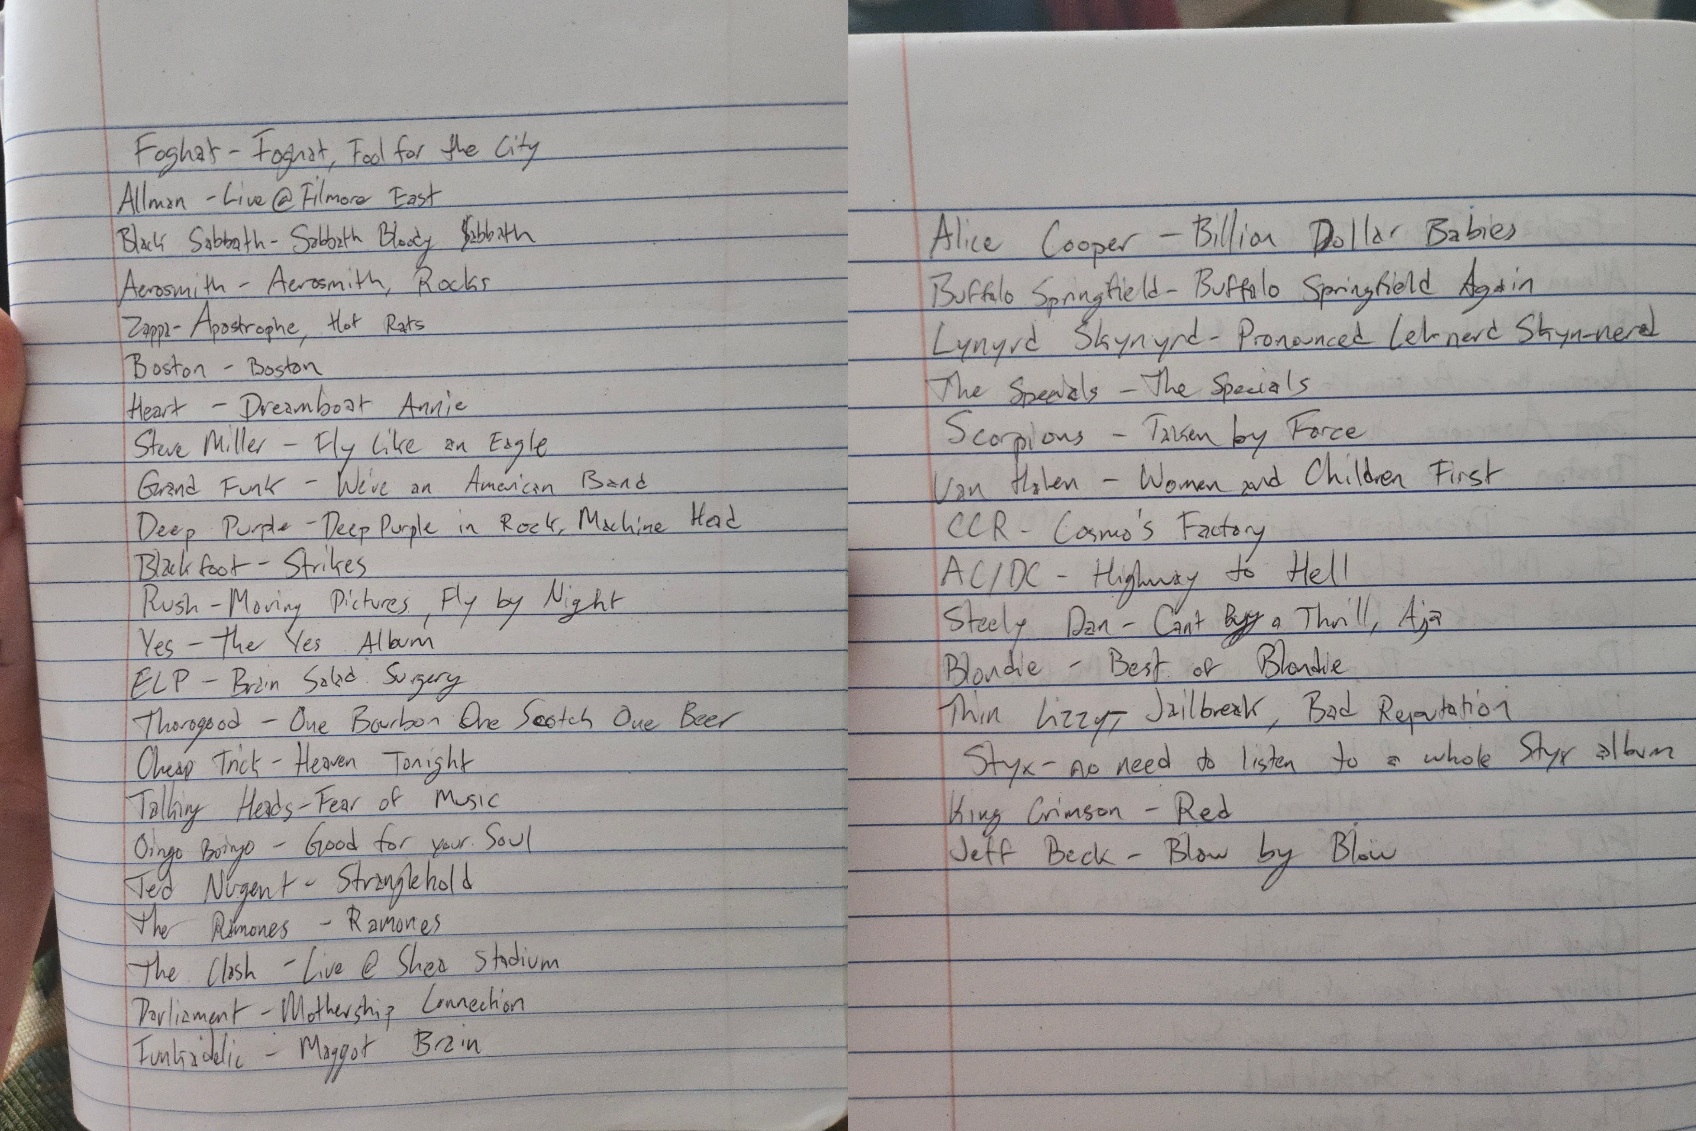 Foghat - Foghat, Fool for the City
Allman - Live @ Filmore East
Black Sabbath - Sabbath Bloody Sabbath
Aerosmith - Aerosmith, Rocks
Zappa - Apostrophe, Hot Rats
Boston - Boston
Heart - Dreamboat Annie
Steve Miller - Fly Like an Eagle
Grand Funk - We're an American Band
Deep Purple - Deep Purple in Rock, Machine Head
Blackfoot - Strikes
Rush - Moving Pictures, Fly by Night
Yes - The Yes Album
ELP - Brain Salad Surgery
Thorogood - One Bourbon One Scotch One Beer
Cheap Trick - Heaven Tonight
Talking Heads - Fear of Music
Oingo Boingo - Good for your Soul
Ted Nugent - Stranglehold
The Ramones - Ramones
The Clash - Live @ Shea Stadium
Parliament - Mothership Connection
Funkadelic - Maggot Brain
Alice Cooper - Billion Dollar Babies
Buffalo Springfield - Buffalo Springfield Again
Lynyrd Skynyrd - Pronounced Leh-nerd Skyn-nerd
The Specials - The Specials
Scorpions - Taken by Force
Van Halen - Women and Children First
CCR - Cosmo's Factory
AC/DC - Highway to Hell
Steely Dan - Cant Buy a Thrill, Aja
Blondie - Best of Blondie
Thin Lizzy - Jailbreak, Bad Reputation
Styx - no need to listen to a whole Styx album
King Crimson - Red
Jeff Beck - Blow by Blow